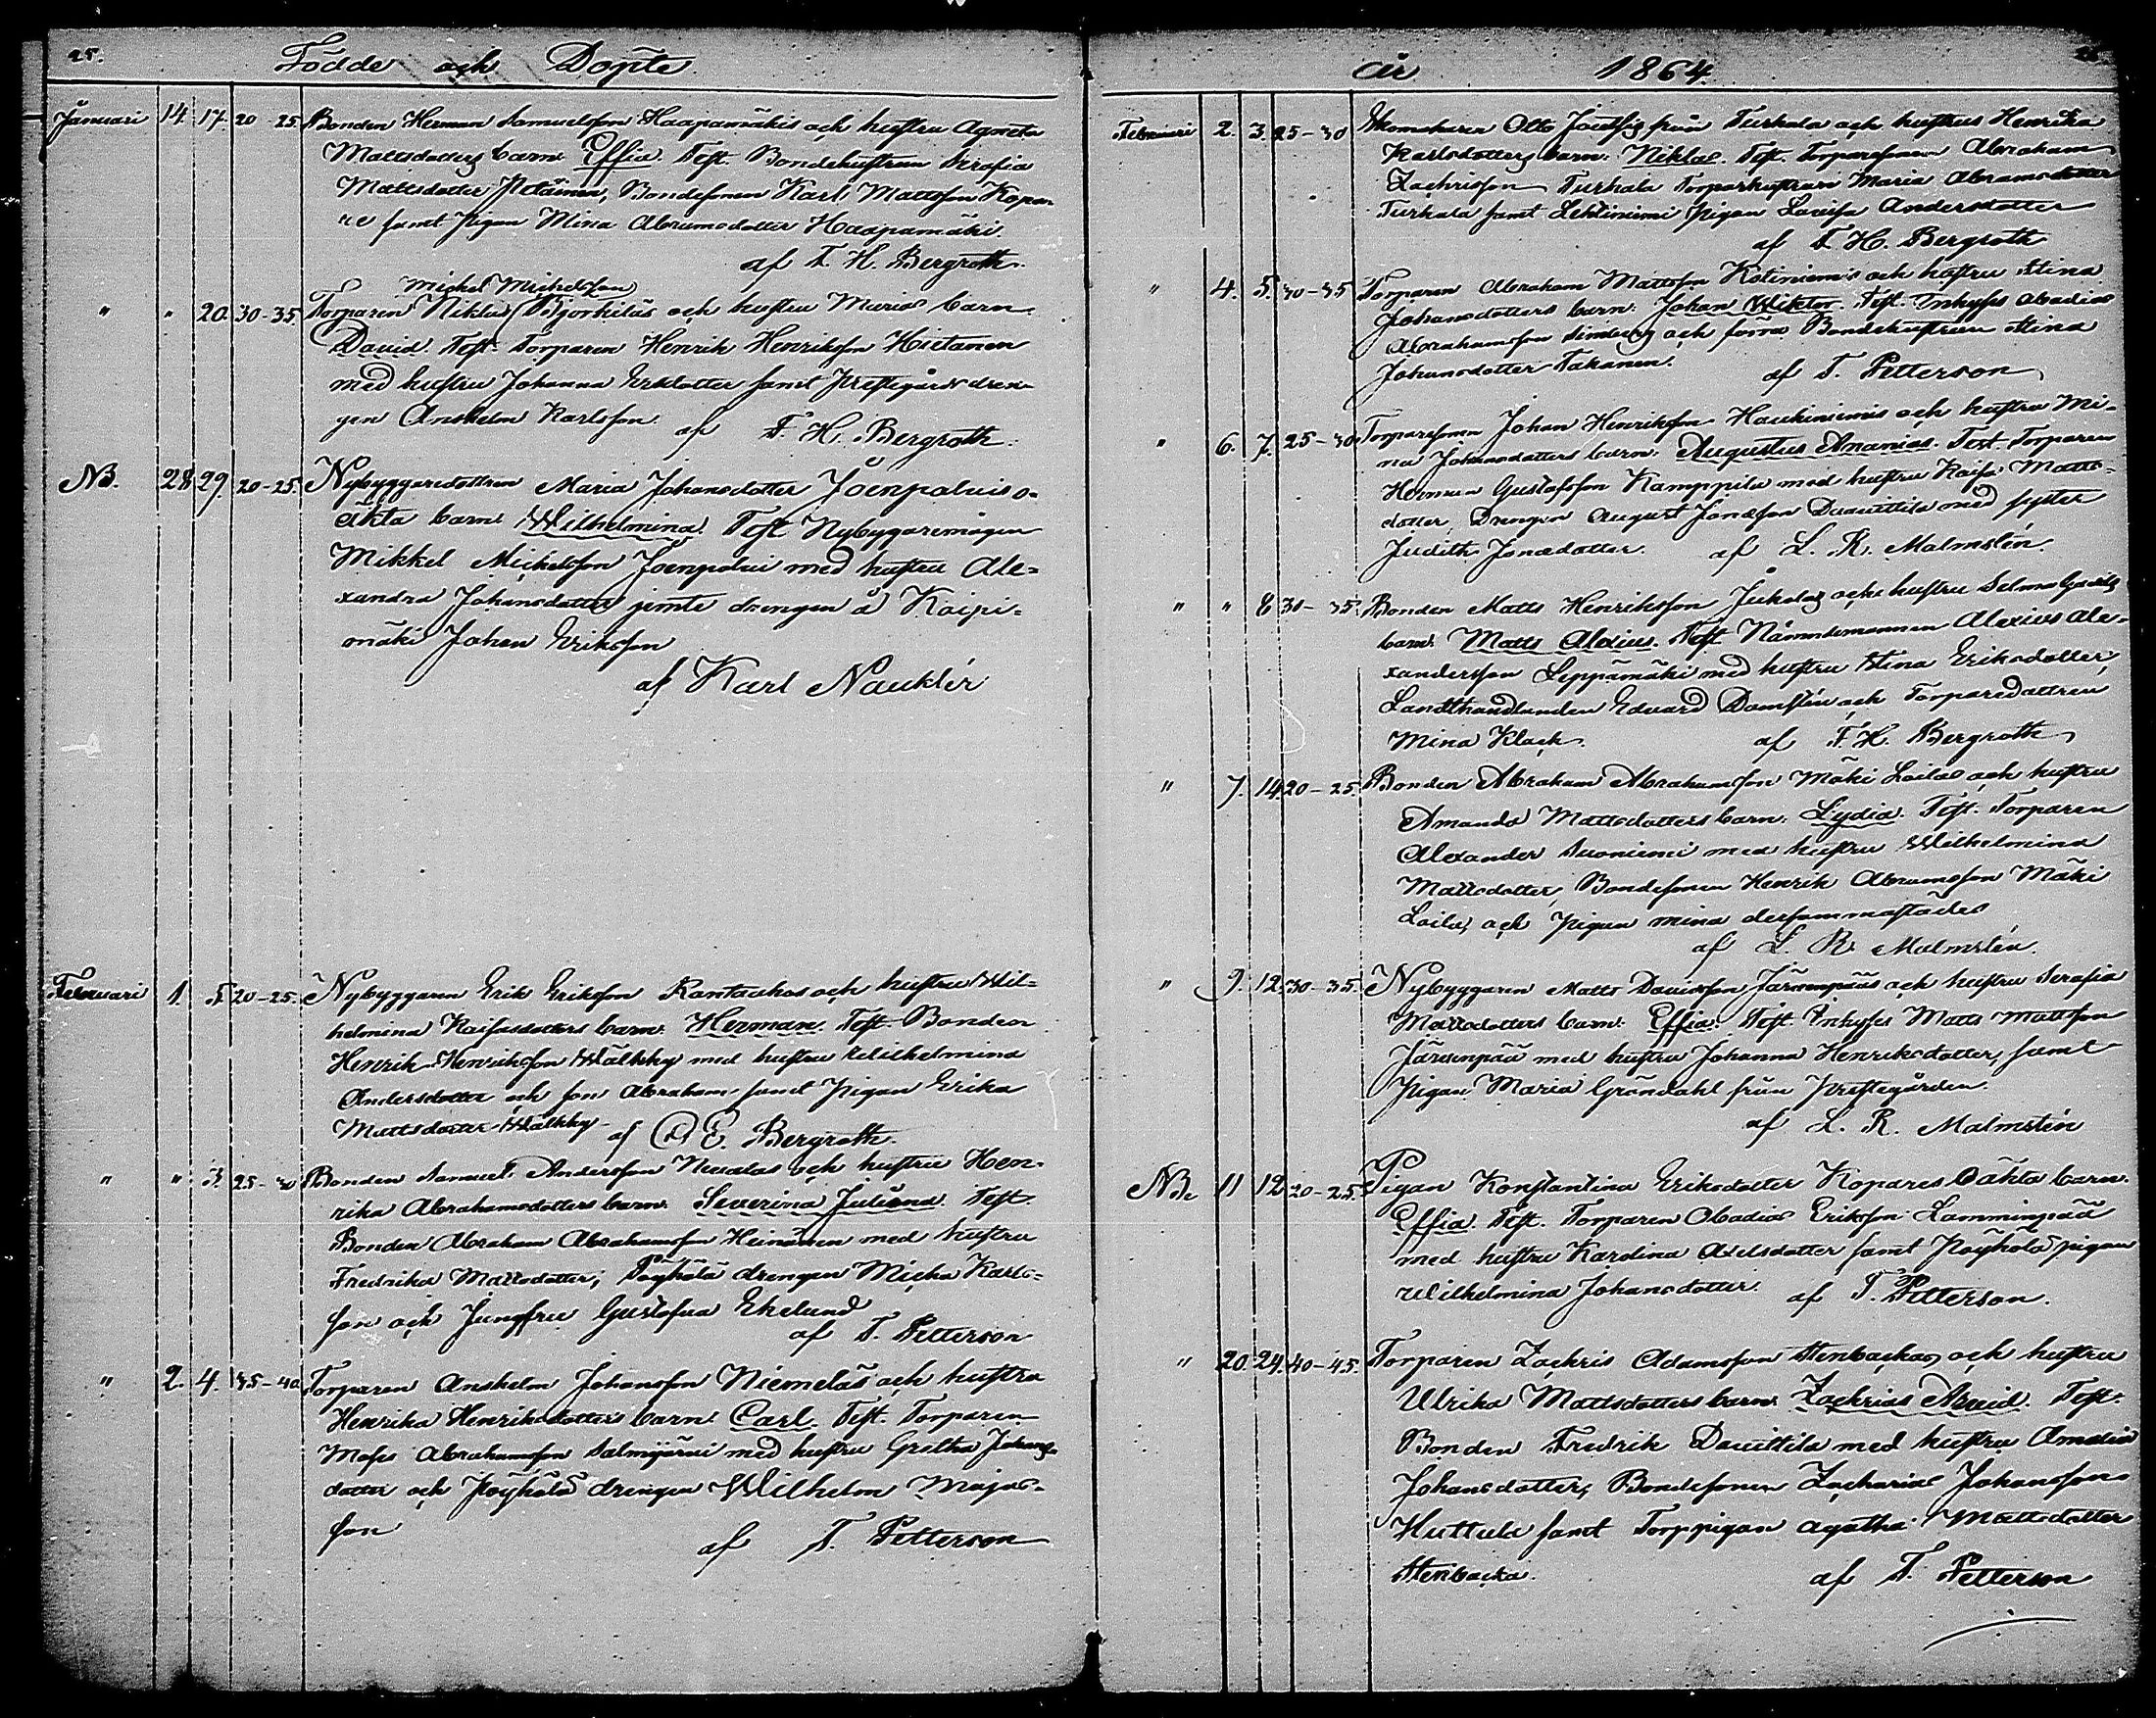 25.
Födde och Döpte
Januari 14 17. 20-25. Bonden Herman Samuelsson Haapamäkis och hustru Agneta
Mattsdotters barn Effia. Test. Bondehustrun Serafia
Mattsdotter Bondesonen Karl Mattsson Kopa-
re samt Pigan Mina Abramsdotter Haapamäki.
af F. H. Bergroth.
Michel Michelsson
" " 20. 30-35. Torparen Niklas Björkiläs och hustru Marias barn
David. Test. Torparen Henrik Henriksson Hietanen
med hustru Johanna Ersdotter samt Prestgårds dren-
gen Anshelm Karlsson. af F. H. Bergroth.
NB. 28 29. 20-25. Nybyggaredottren Maria Johansdotter Joenpoluis o-
äkta barn Wilhelmina. Test Nybyggaremågen
Mikkel Michelsson Joenpolui med hustru Ale-
xandra Johansdotter jemte drengen å Koipi-
mäki Johan Eriksson
af Karl Nauklér
Februari 1. 5. 20-25. Nybyggaren Erik Eriksson Rantauhos och hustru Wil-
helmina Kaisasdotters barn. Herman. Test. Bonden
Henrik Henriksson Wälkky med hustru Wilhelmina
Andersdotter och son Abraham samt Pigan Erika
Mattsdotter Wälkky. af E. Bergroth.
" " 3. 25-30 Bonden Samuel Andersson Neualas och hustru Hen-
rika Abrahamsdotters barn. Severina Juliana. Test.
Bonden Abraham Abrahamsson Heinänen med hustru
Fredrika Mattsdotter, Pöyhölä drengen Micha Karls-
son och Jungfru Gustafva Ekelund
af T. Petterson
" 2. 4. 35-40. Torparen Anshelm Johansson Niemeläs och hustru
Henrika Henriksdotters barn. Carl. Test. Torparen
Moses Abrahamsson Salmijärvi med hustru Gretha Johans-
dotter och Pöyhölä drengen Wilhelm Majas-
son
af T. Petterson
år 1864.
Februari 2. 3. 25-30 Skomakaren Otto från Turkala och hustrus Henrika
Karlsdotters barn. Niklas. Test. Torparesonen Abraham
Zachrisson Turkala Torparhustrun Maria Abramsdotter
Turkala samt Lehtiniemi Pigan Lovisa Andersdotter
af F. H. Bergroth
" 4. 5. 30-35 Torparen Abraham Mattsson Kotiniemis och hustru Stina
Johansdotters barn. Johan Wiktor. Test. Inhyses Abadias
Abrahamsson och förra Bondehustrun Stina
Johansdotter Takanen. af T. Petterson
" 6. 7. 25-30 Torparesonen Johan Henriksson Haukiniemis och hustru Mi-
na Johansdotters barn. Augustus Ananias. Test. Torparen
Herman Gustafsson Kamppila med hustru Kaisa Matts-
dotter, Drengen August Jonasson Dauittila med syster
Judith Jonasdotter. af L. R. Malmstén.
" " 8 30-35. Bonden Matts Henriksson Jukolas och hustru Selma
barn. Matts Alexius. Test Nämndemannen Alexius Ale-
xandersson Leppämäki med hustru Stina Eriksdotter,
Landthandlanden Edvard Damstén och Torparedottren
Mina Klack. af F. H. Bergroth
" 7. 14 20-25. Bonden Abraham Abrahamsson Mäki Loilas och hustru
Amanda Mattsdotters barn. Lydia. Test. Torparen
Alexander Suoniemi med hustru Wilhelmina
Mattsdotter, Bondesonen Henrik Abramsson Mäki
Loila, och Pigan Mina dersammastädes
af L. R. Malmstén.
" 9. 12. 30-35. Nybyggaren Matts Davidsson Järvenpääs och hustru Serafia
Mattsdotters barn. Effia. Test. Inhyses Matts Mattsson
Järvenpää med hustru Johanna Henriksdotter, samt
Pigan Maria Gröndahl från Prestegården.
af L. R. Malmstén
NB. 11 12 20-25. Pigan Konstantina Eriksdotter Kopares oäkta barn.
Effia. Test. Torparen Obadias Eriksson Lamminpää
med hustru Karolina Axelsdotter samt Pöyhölä pigan
Wilhelmina Johansdotter. af T. Petterson.
" 20. 24. 40-45. Torparen Zachris Adamsson Stenbackas och hustru
Ulrika Mattsdotters barn. Zachrias Arvid. Test.
Bonden Fredrik Dauittila med hustru Amalia
Johansdotter, Bondesonen Zacharias Johansson
Huttula samt Torppigan Agatha Mattsdotter
Stenbacka. af T. Petterson